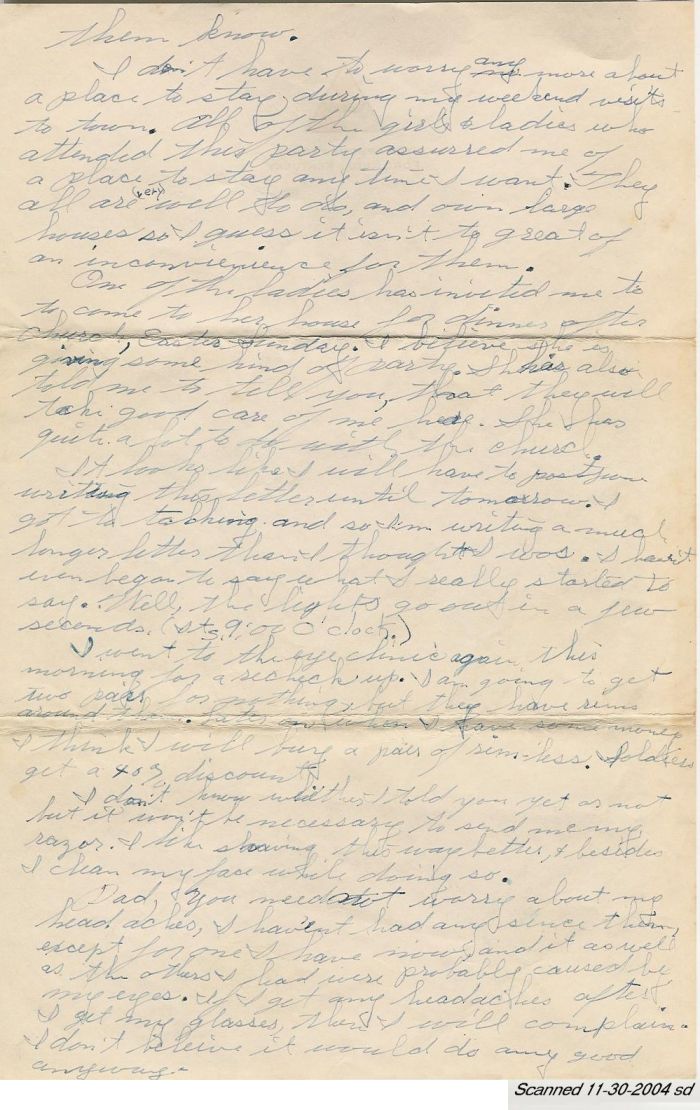 them know.
I don't have to worry any more about
a place to stay during my weekend visits
to town. All of the girls & ladies who
attended this party assurred me of
a place to stay any time I want. They
all are (very) well to do, and own large
houses so I guess it isn't to great of
an inconvienience for them.
One of the ladies has invited me to
to come to her house for dinner after
church, Easter Sunday. I believe she is
giving some kind of party. She has also
told me to tell you, that they will
take good care of me here. She has
quite a lot to do with the church.
It looks like I will have to postpone
writing this letter until tomorrow. I
got to talking and so I'm writing a much
longer letter than I thought I was. I haven't
even began to say what I really started to
say. Well, the lights go out in a few
seconds. (it's 9:00 O'clock.)
I went to the eye clinic again this
morning for a recheck up. I am going to get
two pairs for nothing, but they have rims
around them. Later on when I have some money
I think I will buy a pair of rim-less. Soldiers
get a 40% discount.
I don't know whether I told you yet or not
but it won't be necessary to send me my
razor. I like shaving this way better, & besides
I clean my face while doing so.
Dad, you need not worry about my
head aches, I haven't had any since then,
except for one I have now, and it as well
as the others I had were probably caused be
my eyes. If I get any headaches after
I get my glasses, then I will complain.
I don't beleive it would do any good
anyway.
Scanned 11-30-2004 sd